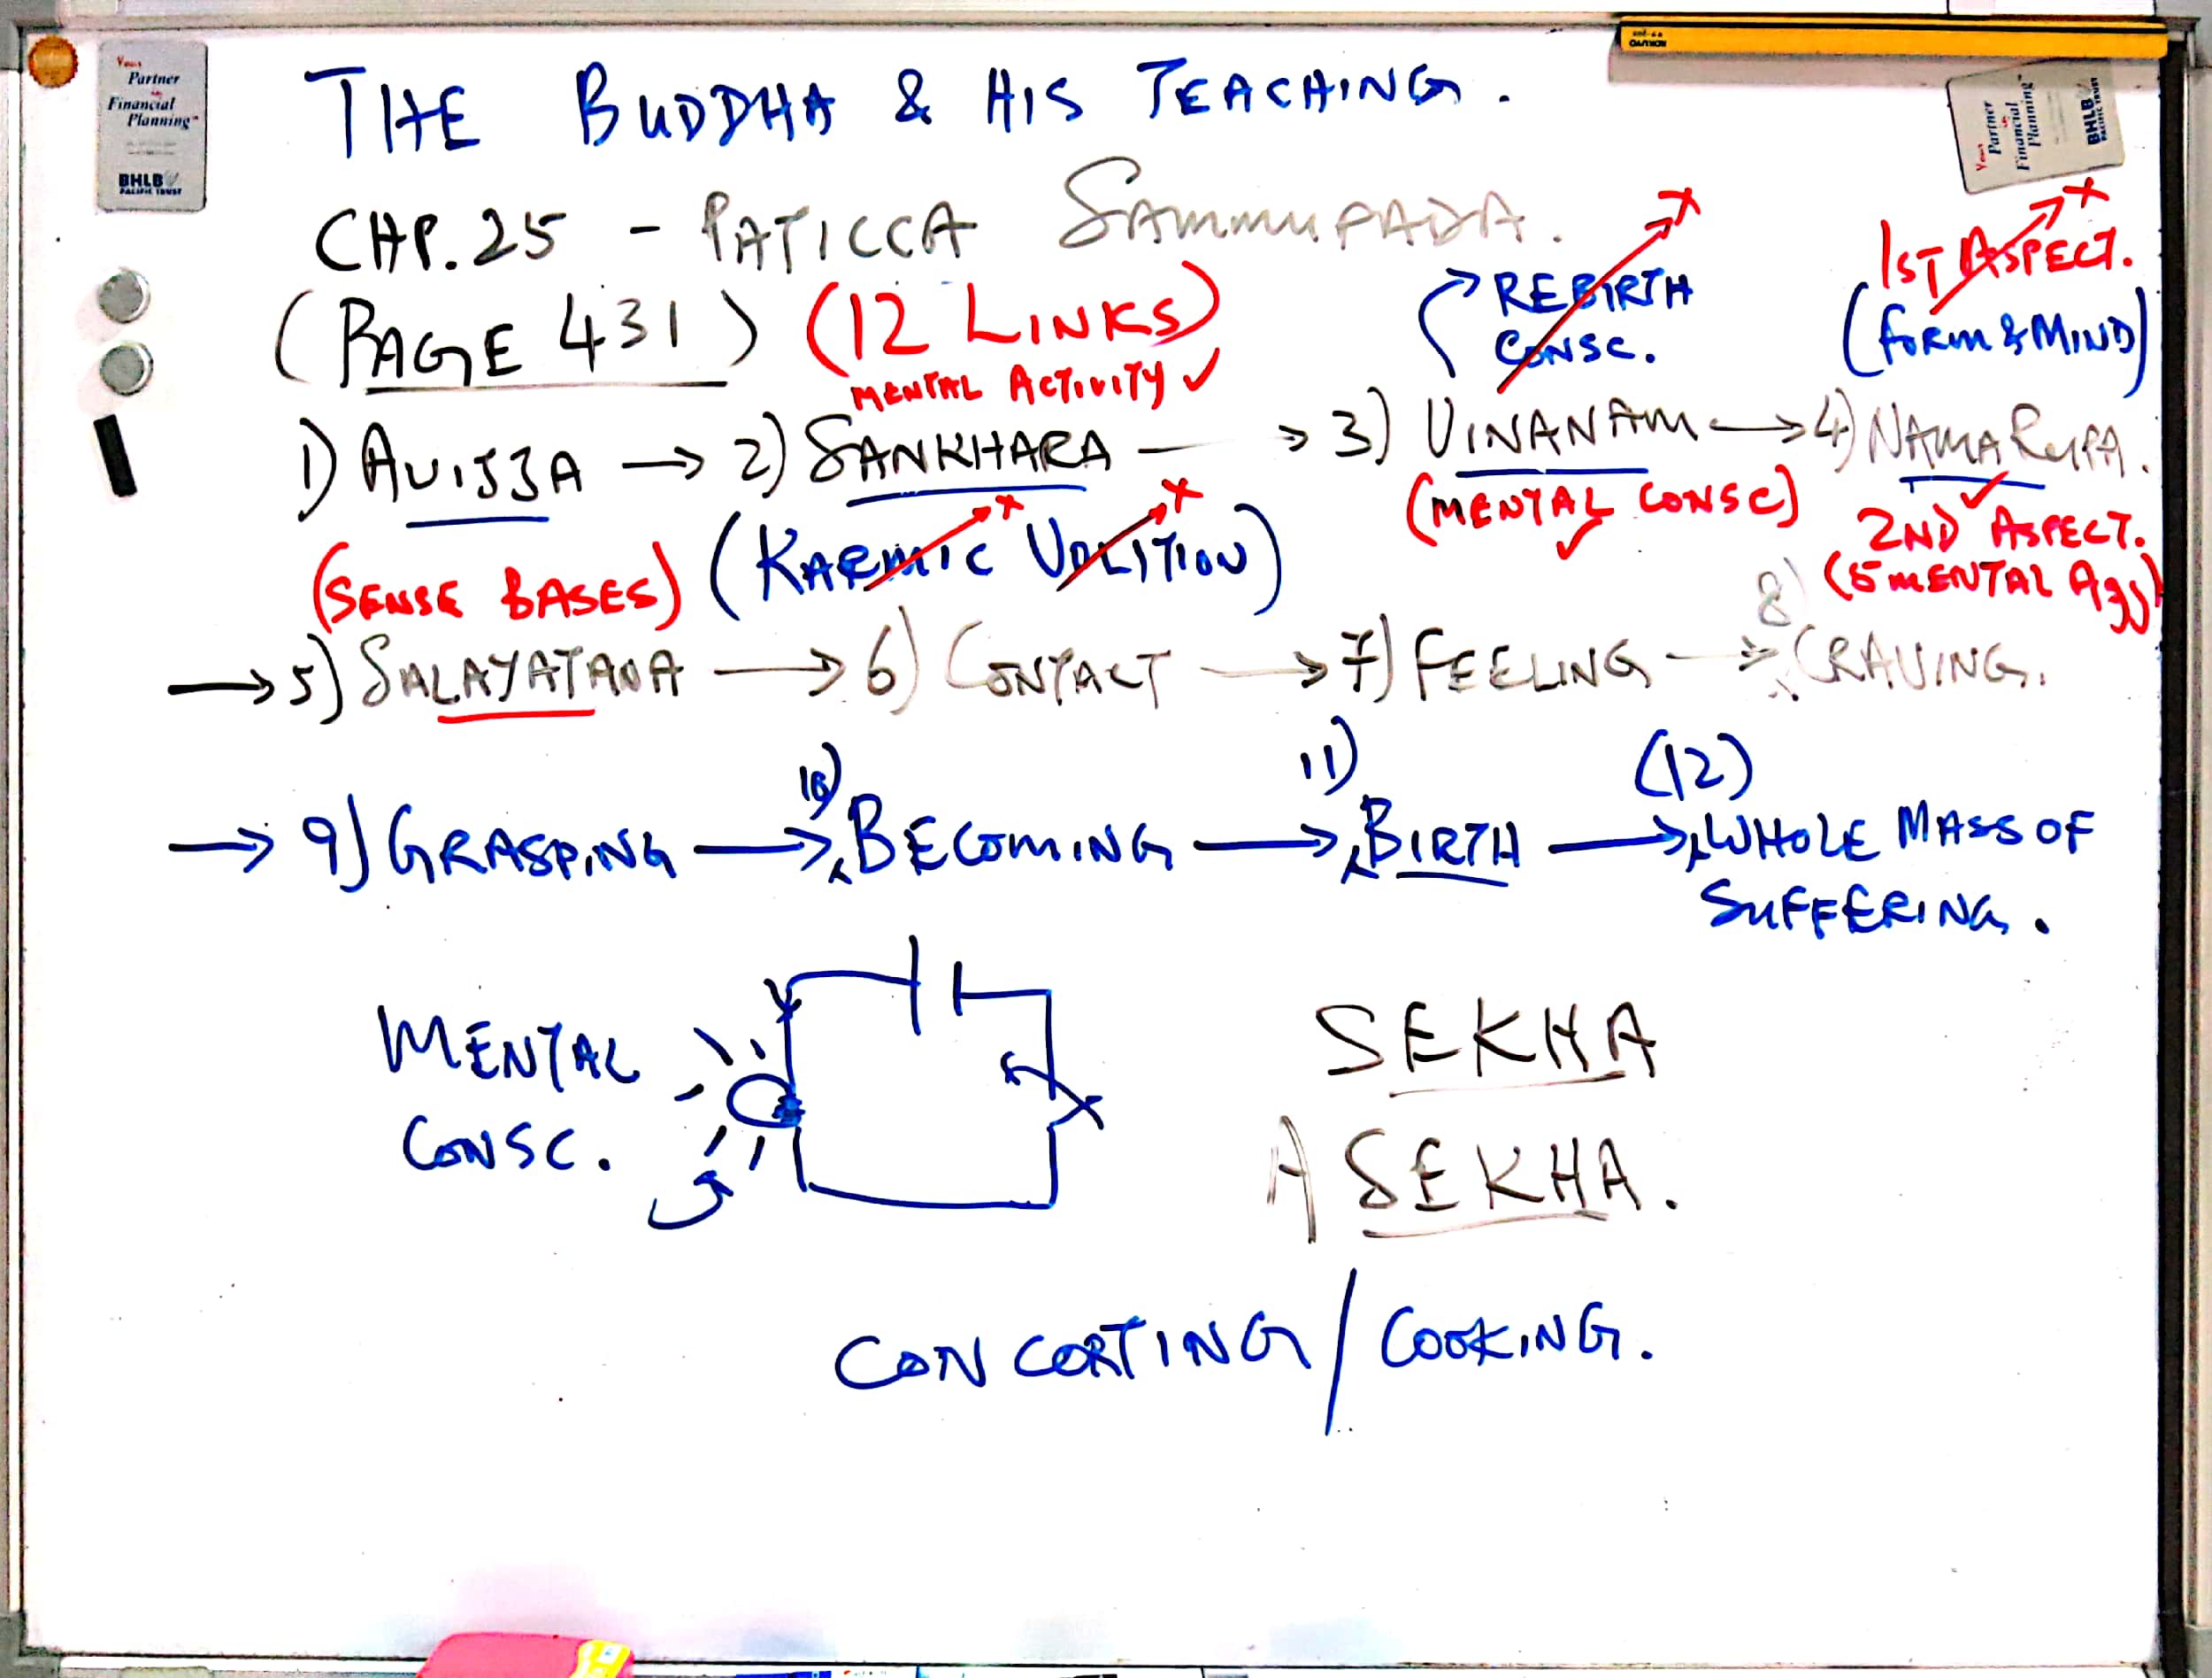 Your
Partner
in
Financial
Planning
BHLB
PACIFIC TRUST
Your
Partner
in
Financial
Planning
BHLB
PACIFIC TRUST
THE BUDDHA & HIS TEACHING.
CHP.25 - PATICCA SAMMUPADA.
(PAGE 431) (12 LINKS)
MENTAL ACTIVITY ✓
REBIRTH
CONSC.
1ST ASPECT.
(FORM & MIND)
1) AVIJJA → 2) SANKHARA → 3) VINANAM → 4) NAMA RUPA.
(KARMIC VOLITION)
(MENTAL CONSC) ✓
✓
2ND ASPECT.
(5 MENTAL Agg)
(SENSE BASES)
→ 5) SALAYATANA → 6) CONTACT → 7) FEELING → 8) CRAVING.
→ 9) GRASPING → 10) BECOMING → 11) BIRTH → (12) WHOLE MASS OF
SUFFERING.
MENTAL
CONSC.
SEKHA
ASEKHA.
CONCORTING / COOKING.